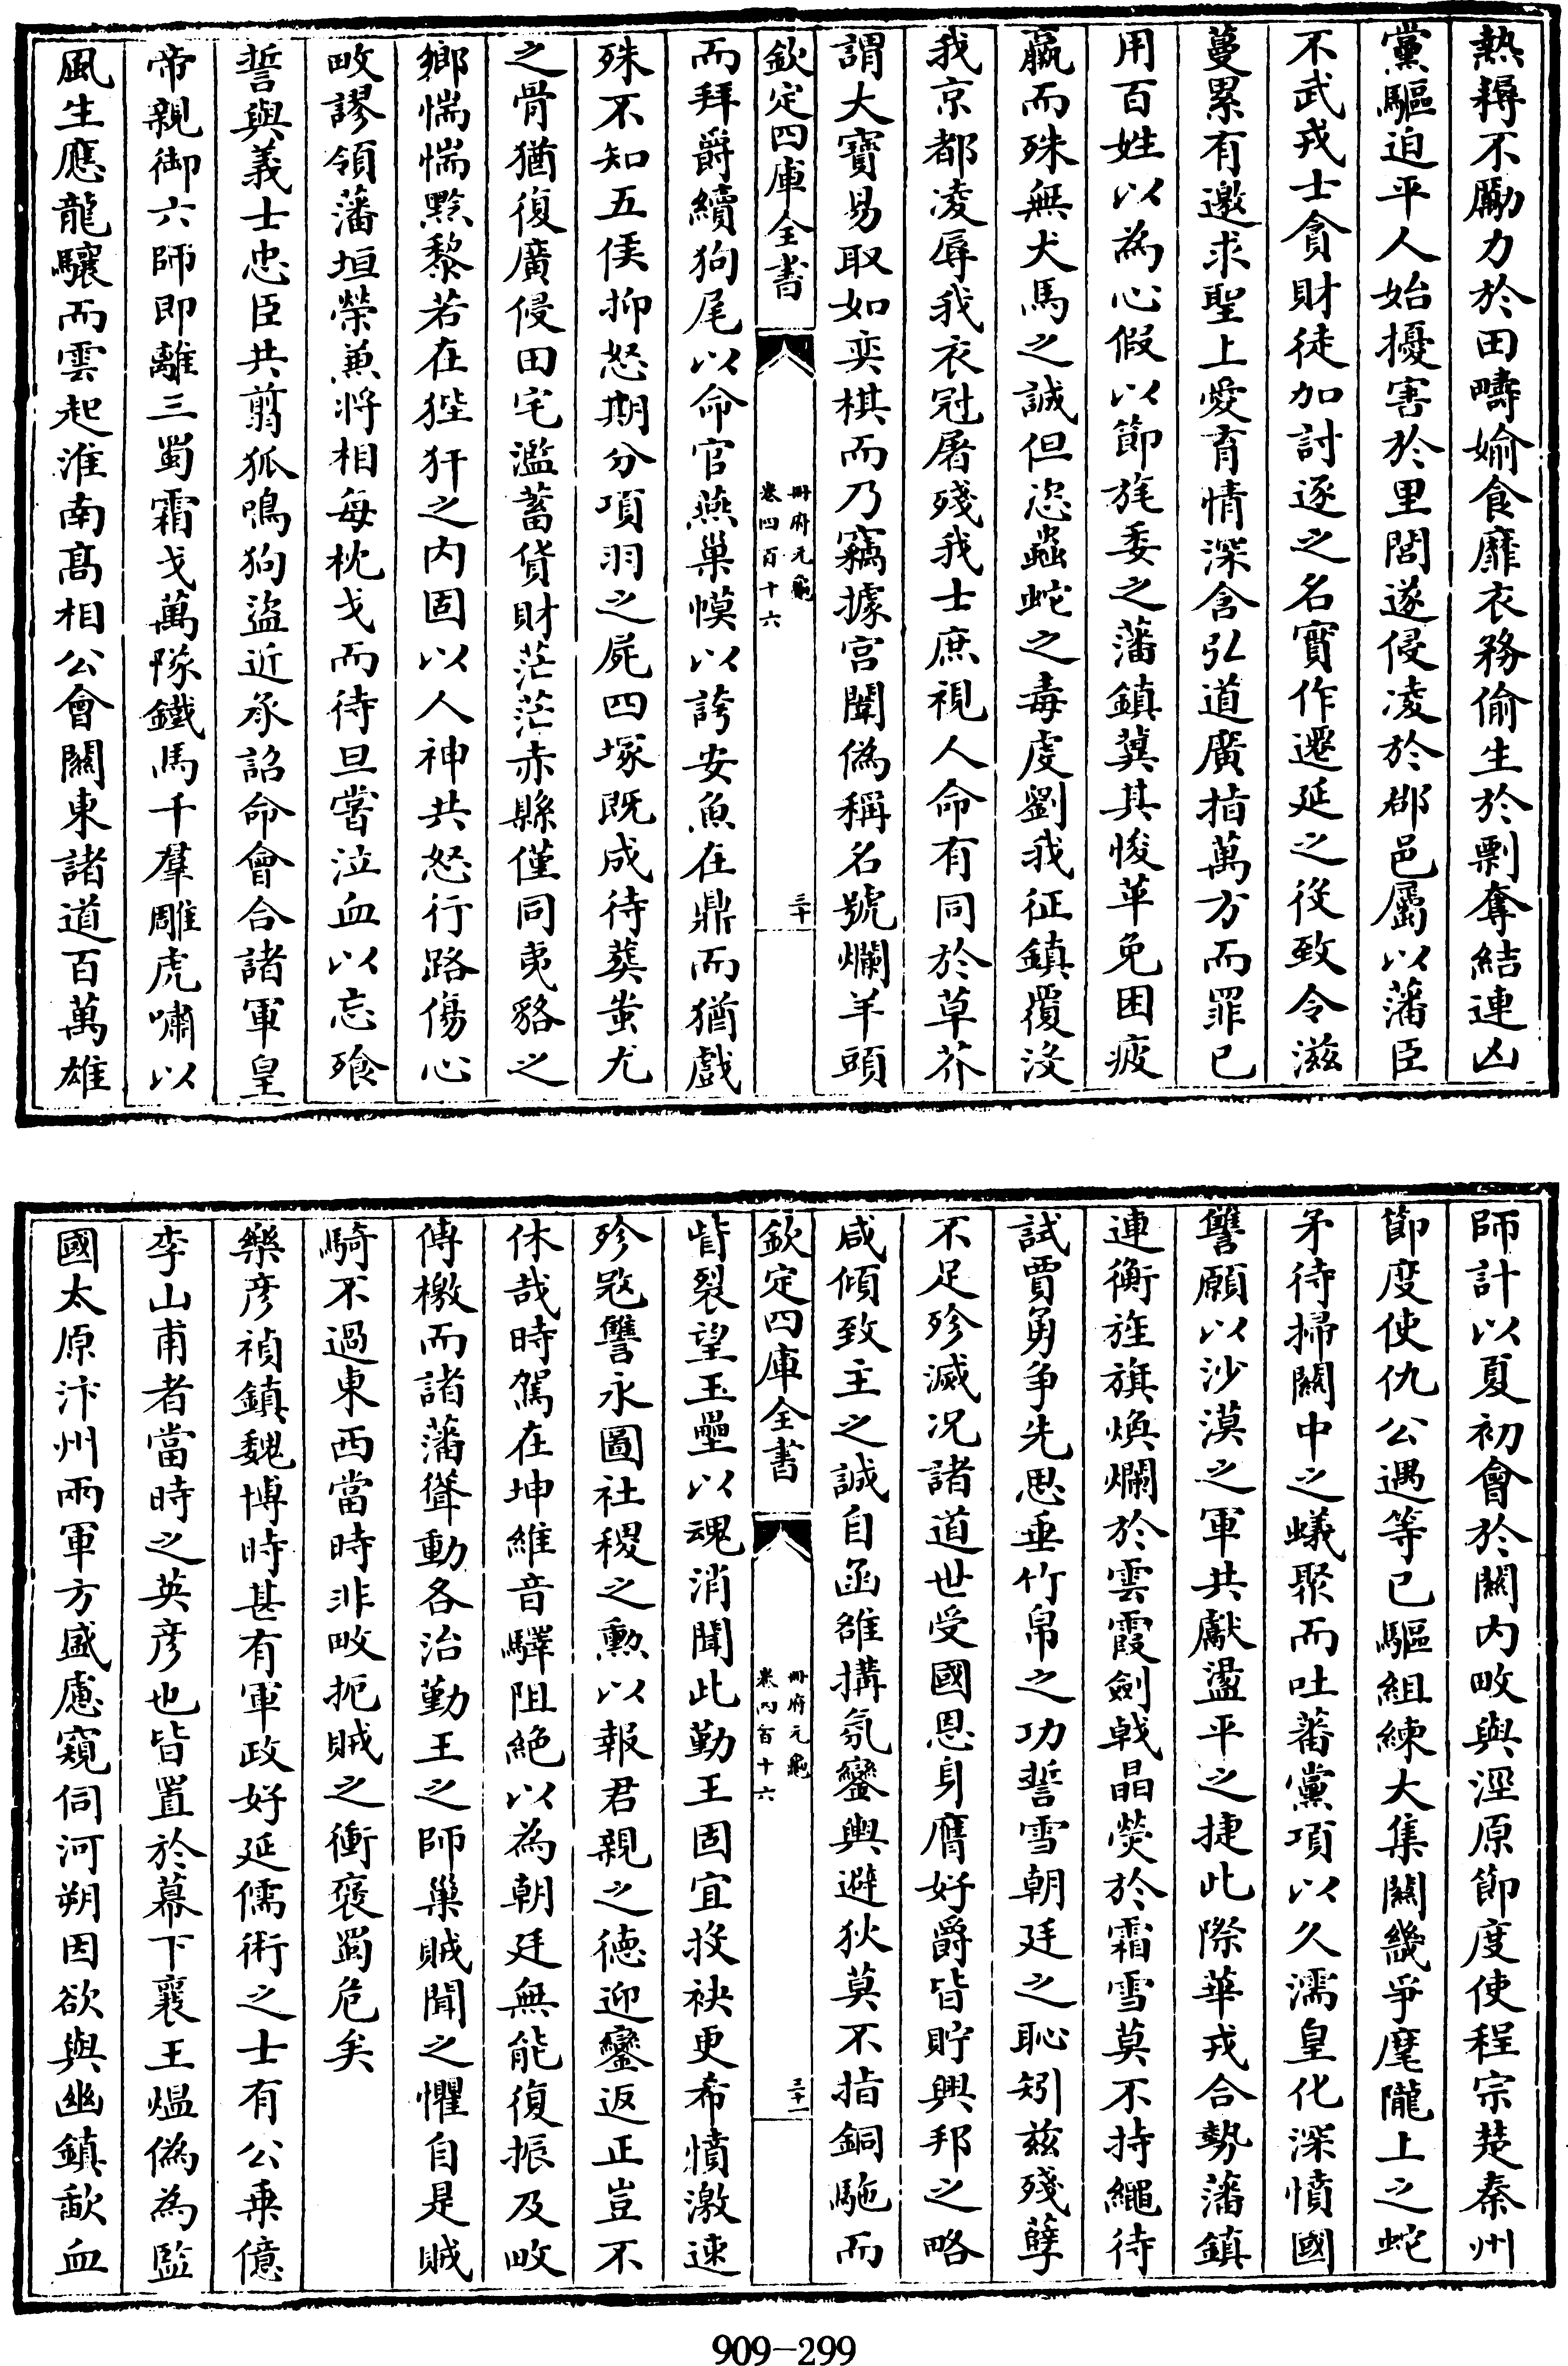 熱耨不勵力於田疇媮食靡衣務偷生於剽奪結連凶
黨驅迫平人始擾害於里閭遂侵凌於郡邑屬以藩臣
不武戎士貪財徒加討逐之名實作遷延之役致令滋
蔓累有邀求聖上愛育情深含弘道廣指萬方而罪已
用百姓以為心假以節旄委之藩鎮冀其悛革免困疲
羸而殊無犬馬之誠但恣蟲蛇之毒虔劉我征鎮覆沒
我京都凌辱我衣冠屠殘我士庶視人命有同於草芥
謂大寶易取如奕棋而乃竊據宮闈偽稱名號爛羊頭
欽定四庫全書 冊府元龜 卷四百十六 三十
而拜爵續狗尾以命官燕巢幙以誇安魚在鼎而猶戲
殊不知五侯抑怒期分項羽之屍四塚既成待葬蚩尤
之骨猶復廣侵田宅濫蓄貨財茫茫赤縣僅同夷貉之
鄉惴惴黔黎若在狴犴之内固以人神共怒行路傷心
畋謬領藩垣榮兼將相每枕戈而待旦嘗泣血以忘飱
誓與義士忠臣共翦狐鳴狗盜近承詔命會合諸軍皇
帝親御六師即離三蜀霜戈萬隊鐵馬千羣雕虎嘯以
風生應龍驤而雲起淮南髙相公會關東諸道百萬雄
師計以夏初會於關内畋與涇原節度使程宗楚秦州
節度使仇公遇等已驅組練大集關畿爭麾隴上之蛇
矛待掃關中之蟻聚而吐蕃黨項以久濡皇化深憤國
讐願以沙漠之軍共獻盪平之捷此際華戎合勢藩鎮
連衡旌旗煥爛於雲霞劍戟晶熒於霜雪莫不持繩待
試賈勇争先思垂竹帛之功誓雪朝廷之恥矧兹殘孽
不足殄滅况諸道世受國恩身膺好爵皆貯興邦之略
咸傾致主之誠自函雒搆氛鑾輿避狄莫不指銅駞而
欽定四庫全書 冊府元龜 卷四百十六 三十一
眥裂望玉壘以魂消聞此勤王固宜投袂更希憤激速
殄冦讐永圖社稷之勲以報君親之德迎鑾返正豈不
休哉時駕在坤維音驛阻絶以為朝廷無能復振及畋
傳檄而諸藩聳動各治勤王之師巢賊聞之懼自是賊
騎不過東西當時非畋扼賊之衝褒蜀危矣
樂彦禎鎮魏博時甚有軍政好延儒術之士有公乗億
李山甫者當時之英彦也皆置於幕下襄王熅偽為監
國太原汴州兩軍方盛慮窺伺河朔因欲與幽鎮歃血
909-299